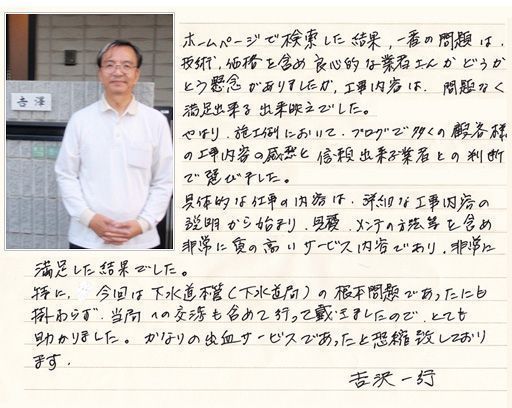 吉澤
ホームページで検索した結果、一番の問題は、
技術、価格を含め良心的な業者さんかどうか
という懸念がありましたが、工事内容は、問題なく
満足出来る出来映えでした。
やはり、施工例において、ブログで多くの顧客様
の工事内容の感想と信頼出来る業者との判断
で選びました。
具体的な仕事の内容は、詳細な工事内容の
説明から始まり、メンテの方法等を含め
非常に質の高いサービス内容であり、非常に
満足した結果でした。
特に、今回は下水道本管(下水道局)の根本問題であったにも
掛わらず、当局への交渉も含めて行って戴きましたので、とても
助かりました。かなりの出血サービスであったと恐縮致しており
ます。
吉沢一行